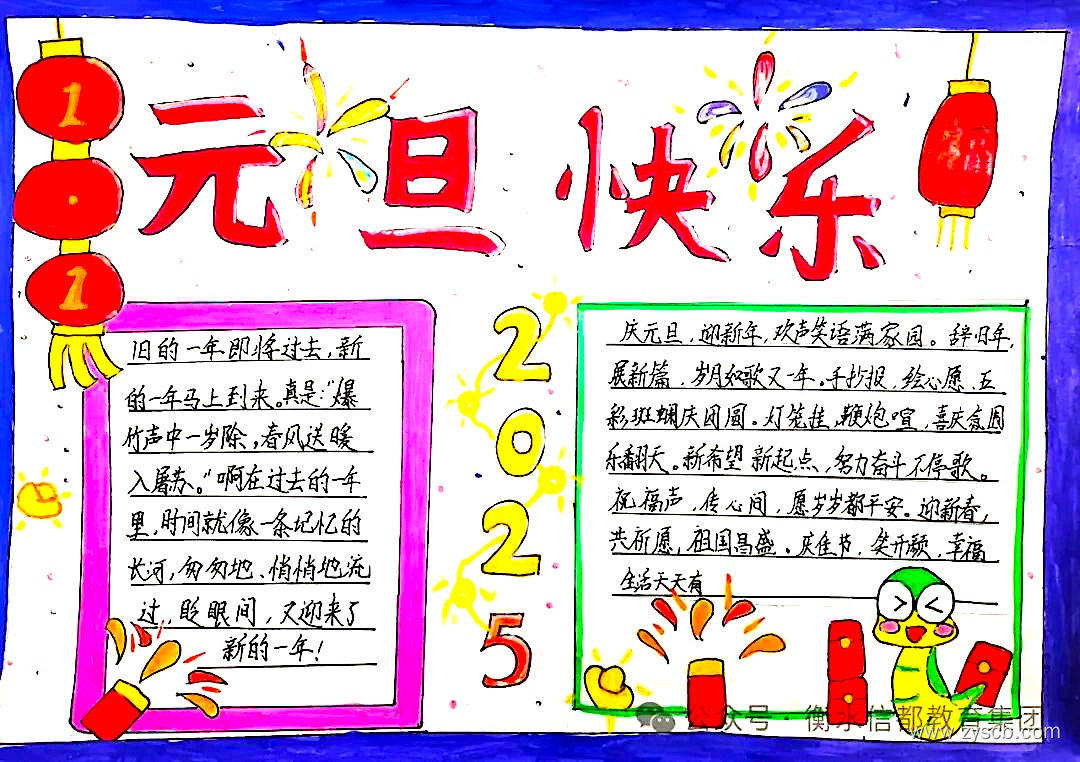 1
·
1
元旦快乐
福
旧的一年即将过去,新
的一年马上到来。真是:"爆
竹声中一岁除,春风送暖
入屠苏。"啊在过去的一年
里,时间就像一条记忆的
长河,匆匆地、悄悄地流
过,眨眼间,又迎来了
新的一年!
2
0
2
5
庆元旦,迎新年,欢声笑语满家园。辞旧年,
展新篇,岁月如歌又一年。手抄报,绘心愿,五
彩斑斓庆团圆。灯笼挂,鞭炮喧,喜庆氛围
乐翻天。新希望新起点,努力奋斗不停歌。
祝福声,传心间,愿岁岁都平安。迎新春,
共祈愿,祖国昌盛。庆佳节,笑开颜,幸福
生活天天有
公众号·衡水信都教育集团
www.zyscb.com